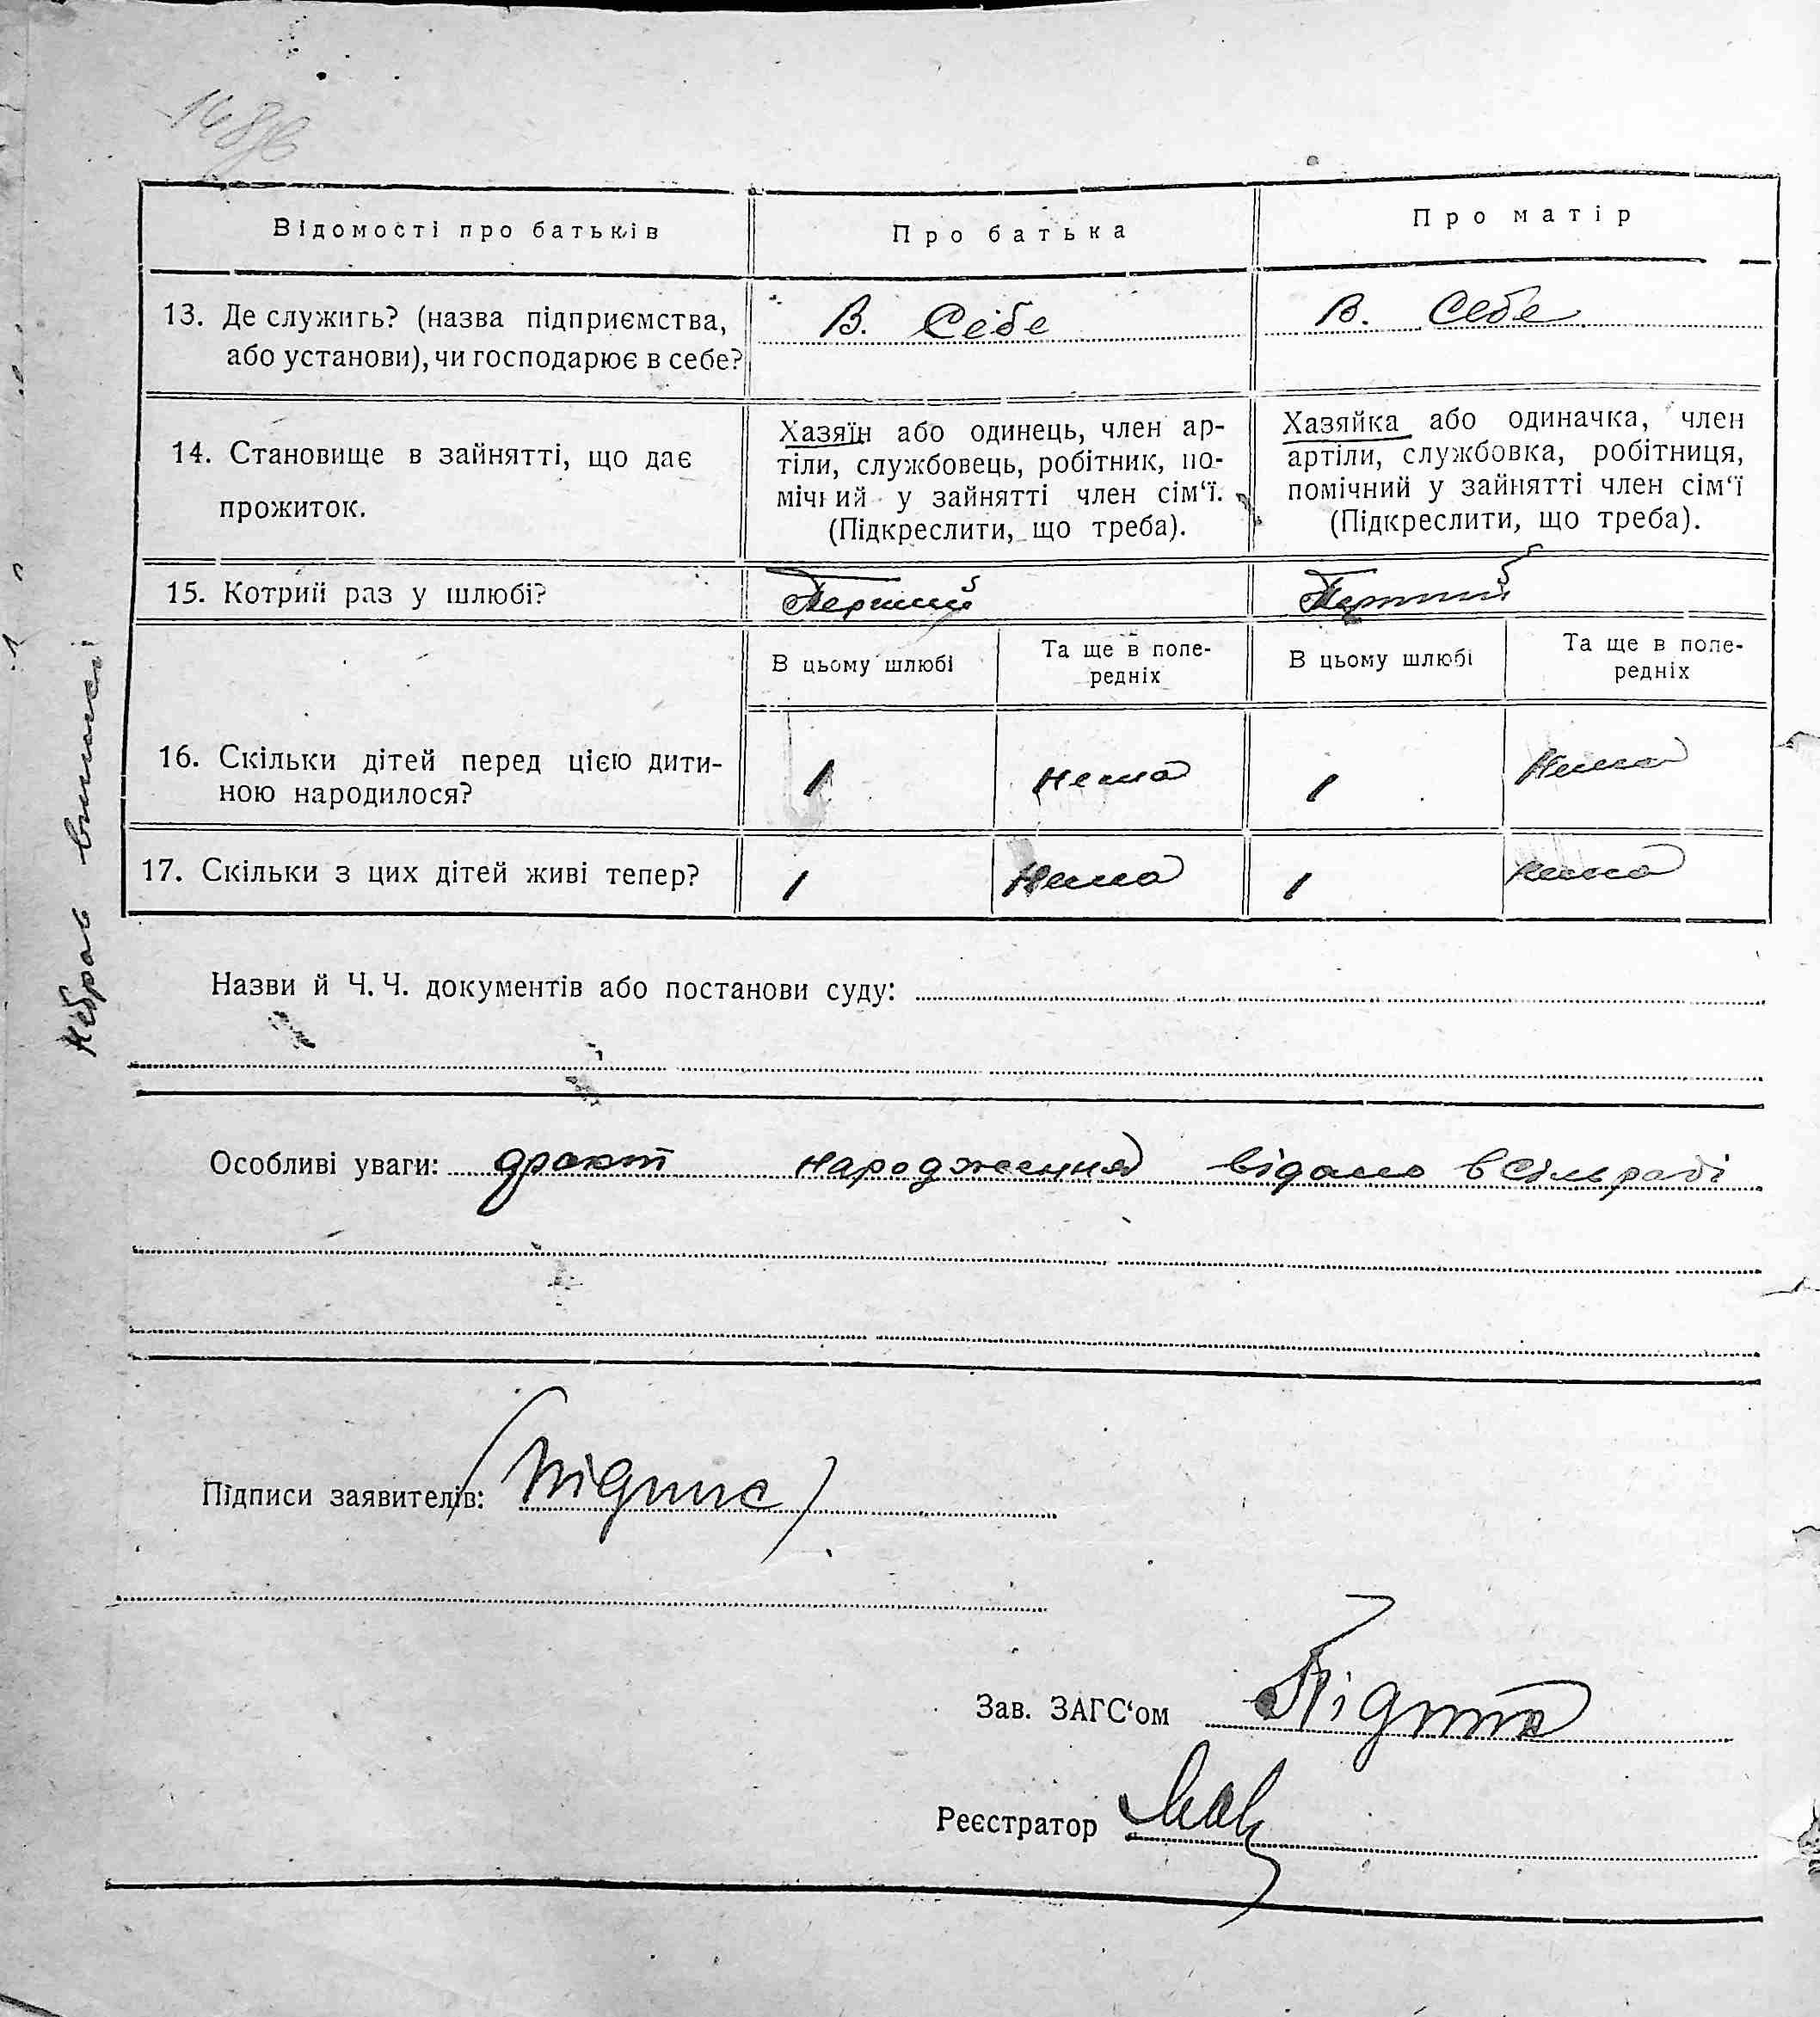 Відомості про батьків
Про батька
Про матір
13. Де служить? (назва підприємства,
або установи), чи господарює в себе?
В. Себе
В. Себе
14. Становище в зайнятті, що дає
прожиток.
Хазяїн або одинець, член ар-
тіли, службовець, робітник, по-
мічний у зайнятті член сім‘ї.
(Підкреслити, що треба).
Хазяйка або одиначка, член
артіли, службовка, робітниця,
помічний у зайнятті член сім‘ї
(Підкреслити, що треба).
15. Котрий раз у шлюбі?
Перший
Перший
В цьому шлюбі
Та ще в попе-
редніх
В цьому шлюбі
Та ще в попе-
редніх
16. Скільки дітей перед цією дити-
ною народилося?
1
Нема
1
Нема
17. Скільки з цих дітей живі тепер?
1
Нема
1
Нема
Назви й Ч. Ч. документів або постанови суду:
Особливі уваги: факт народження відомо в сільраді
Підписи заявителів: (підпис)
Зав. ЗАГС‘ом Підпис
Реєстратор